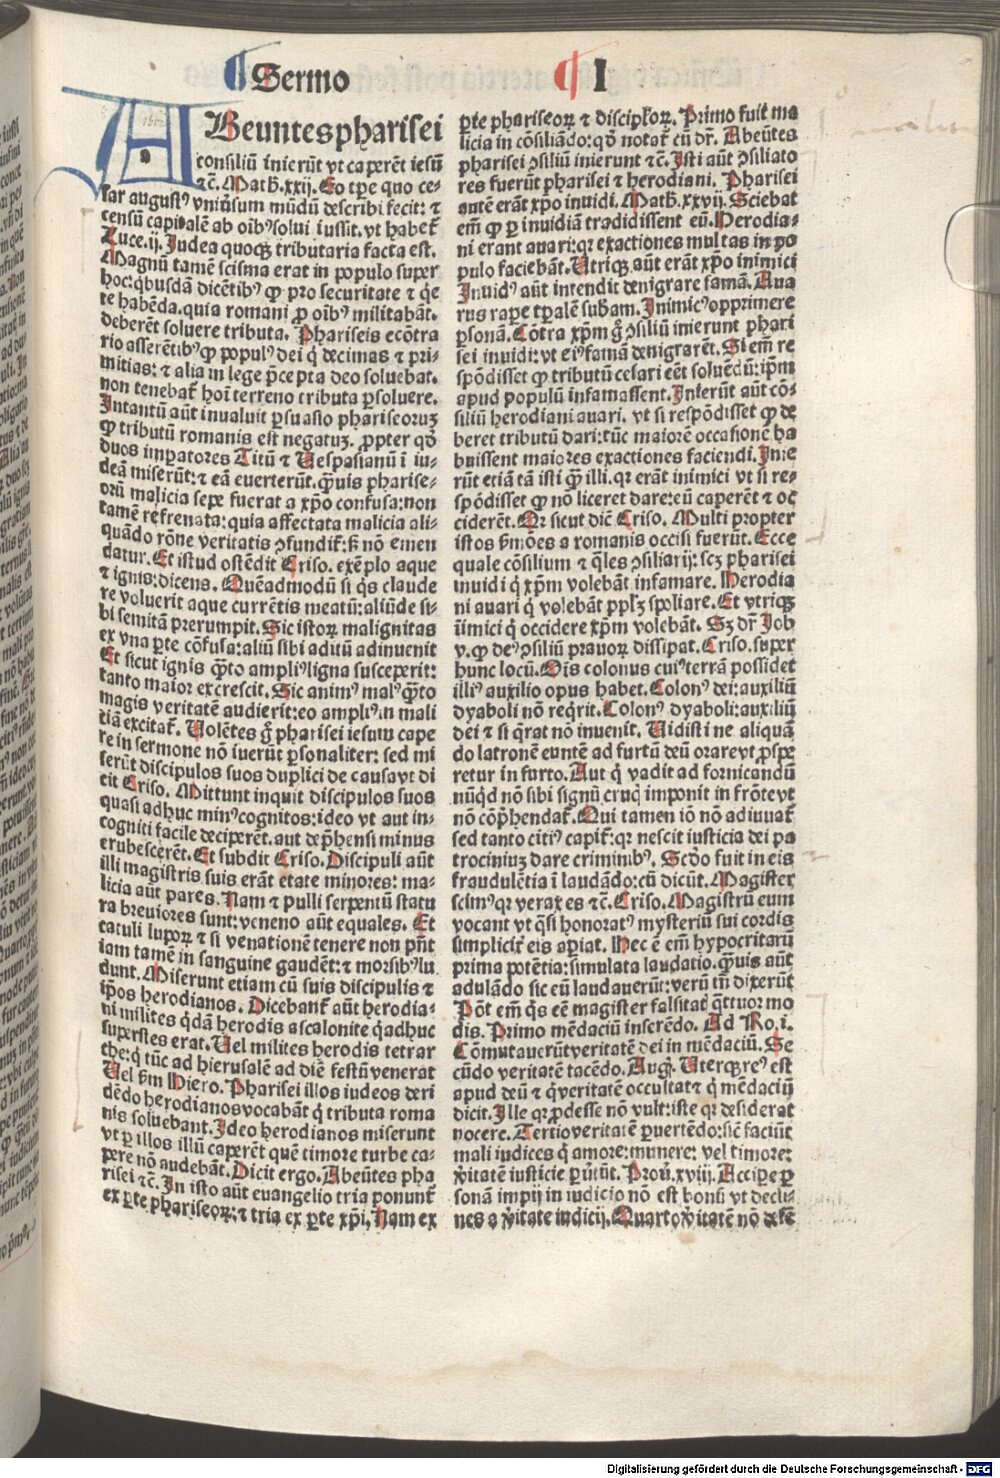 Sermo I
ABeuntes pharisei
consiliū inierūt vt caperēt iesū
⁊c̄. Math̄.xxij. Eo tp̄e quo ce-
sar august⁹ vniūsum mūdū describi fecit: ⁊
censū capitalē ab oib⁹ solui iussit. vt habet̄
Luce.ij. Judea quoqꝫ tributaria facta est.
Magnū tamē scisma erat in populo super
hoc: qbusdā dicētib⁹ ꝙ pro securitate ⁊ q̇e
te habēda. quia romani ꝓ oib⁹ militabāt.
deberēt soluere tributa. Phariseis ecōtra
rio asserētib⁹ ꝙ popul⁹ dei q̇ decimas ⁊ pri-
mitias: ⁊ alia in lege p̄cepta deo soluebat.
non tenebat̄ hoi terreno tributa ꝑsoluere.
Intantū aūt inualuit ꝑsuasio phariseoruꝫ
ꝙ tributū romanis est negatuꝫ. ꝓpter qḋ
duos imꝑatores Titū ⁊ Uespasianū ī iu-
deā miserūt: ⁊ eā euerterūt. q̄uis pharise-
orū malicia sepe fuerat a xp̄o confusa: non
tamē refrenata: quia affectata malicia ali-
quādo rōne veritatis ꝯfundit̄: sꝫ nō emen
datur. Et istud ostēdit Criso. exēplo aque
⁊ ignis: dicens. Quēadmodū si q̇s claude
re voluerit aque currētis meatū: aliūde si-
bi semitā prerumpit. Sic istoꝝ malignitas
ex vna ꝑte cōfusa: aliū sibi aditū adinuenit
Et sicut ignis q̄to ampli⁹ ligna susceperit:
tanto maior excrescit. Sic anim⁹ mal⁹ q̄to
magis veritatē audierit: eo ampli⁹ in mali
tiā excitat̄. Uolētes g̊ pharisei iesum cape
re in sermone nō iuerūt ꝑsonaliter: sed mi
serūt discipulos suos duplici de causa vt di
cit Criso. Mittunt inquit discipulos suos
quasi adhuc min⁹ cognitos: ideo vt aut in-
cogniti facile deciperēt. aut dep̄hensi minus
erubescerēt. Et subdit Criso. Discipuli aūt
illi magistris suis erāt etate minores: ma-
licia aūt pares. Nam ⁊ pulli serpentū statu
ra breuiores sunt: veneno aūt equales. Et
catuli lupoꝝ ⁊ si venationē tenere non pn̄t
iam tamē in sanguine gaudēt: ⁊ morsib⁹ lu
dunt. Miserunt etiam cū suis discipulis ⁊
ip̄os herodianos. Dicebant̄ aūt herodia-
ni milites q̇dā herodis ascalonite q̇ adhuc
superstes erat. Uel milites herodis tetrar
che: q̇ tūc ad hierusalē ad diē festū venerat
Uel sm̄ Hiero. Pharisei illos iudeos deri
dēdo herodianos vocabāt q̇ tributa roma
nis soluebant. Ideo herodianos miserunt
vt ꝑ illos illū caperēt quē timore turbe ca-
pere nō audebāt. Dicit ergo. Abeūtes pha
risei ⁊c̄. In isto aūt euangelio tria ponunt̄
ex ꝑte phariseoꝝ: ⁊ tria ex ꝑte xp̄i. Nam ex
ꝑte phariseoꝝ ⁊ discipl̄oꝝ. Primo fuit ma
licia in cōsiliādo: qḋ notat̄ cū dr̄. Abeūtes
pharisei ꝯsiliū inierunt ⁊c̄. Isti aūt ꝯsiliato
res fuerūt pharisei ⁊ herodiani. Pharisei
autē erāt xp̄o inuidi. Math̄.xxvij. Sciebat
em̄ ꝙ ꝑ inuidiā tradidissent eū. Herodia-
ni erant auari: qꝛ exactiones multas in po
pulo faciebāt. Utriqꝫ aūt erāt xp̄o inimici
Inuid⁹ aūt intendit denigrare famā. Aua
rus raꝑe tꝑalē subam̄. Inimic⁹ opprimere
ꝑsonā. Cōtra xp̄m g̊ ꝯsiliū inierunt phari
sei inuidi: vt ei⁹ famā denigrarēt. Si em̄ re
spōdisset ꝙ tributū cesari eēt soluēdū: ip̄m
apud populū infamassent. Inierūt aūt cō-
siliū herodiani auari. vt si respōdisset ꝙ de
beret tributū dari: tūc maiorē occasionē ha
buissent maiores exactiones faciendi. Inie
rūt etiā tā isti q̄ illi. qꝛ erāt inimici vt si re-
spōdisset ꝙ nō liceret dare: eū caperēt ⁊ oc
ciderēt. Qꝛ sicut dic̄ Criso. Multi propter
istos sm̄ōes a romanis occisi fuerūt. Ecce
quale cōsilium ⁊ q̄les ꝯsiliarij: scꝫ pharisei
inuidi q̇ xp̄m volebāt infamare. Herodia
ni auari q̇ volebāt ppl̄ꝫ spoliare. Et vtriqꝫ
iīmici q̇ occidere xp̄m volebāt. Sꝫ dr̄ Job
v. ꝙ de⁹ ꝯsiliū prauoꝝ dissipat. Criso. suꝑer
hunc locū. Oīs colonus cui⁹ terrā possidet
illi⁹ auxilio opus habet. Colon⁹ dei: auxiliū
dyaboli nō reqrit. Colon⁹ dyaboli: auxiliū
dei ⁊ si q̄rat nō inuenit. Uidisti ne aliquā
do latronē euntē ad furtū deū orare vt ꝓspe
retur in furto. Aut q̇ vadit ad fornicandū
nūqd nō sibi signū cruc̄ imponit in frōte vt
nō cōp̄hendat̄. Qui tamen iō nō adiuuat̄
sed tanto citi⁹ capit̄: qꝛ nescit iusticia dei pa
trociniuꝫ dare criminib⁹. Scd̄o fuit in eis
fraudulētia ī laudādo: cū dicūt. Magister
scim⁹ qꝛ verax es ⁊c̄. Criso. Magistrū eum
vocant vt q̄si honorat⁹ mysteriū sui cordis
simplicit̄ eis aꝑiat. Hec ē em̄ hypocritarū
prima potētia: simulata laudatio. q̄uis aūt
adulādo sic eū laudauerūt: verū tn̄ dixerūt
Pōt em̄ q̇s eē magister falsitat̄ q̄ttuor mo
dis. Primo mēdaciū inserēdo. Ad Ro.i.
Cōmutauerūt veritatē dei in mēdaciū. Se
cūdo veritatē tacēdo. Aug̊. Uterqꝫ re⁹ est
apud deū ⁊ q̇ veritatē occultat ⁊ q̇ mēdaciū
dicit. Ille qꝛ ꝓdesse nō vult: iste qꝛ desiderat
nocere. Tertio veritatē ꝑuertēdo: sic̄ faciūt
mali iudices q̇ amore: munere: vel timore:
v̄itatē iusticie ꝑūtūt. Prou̇.xviij. Accipe ꝑ
sonā impij in iudicio nō est bonū vt decli-
nes a v̄itate iudicij. Quarto v̄itatē nō defē
Digitalisierung gefördert durch die Deutsche Forschungsgemeinschaft - DFG